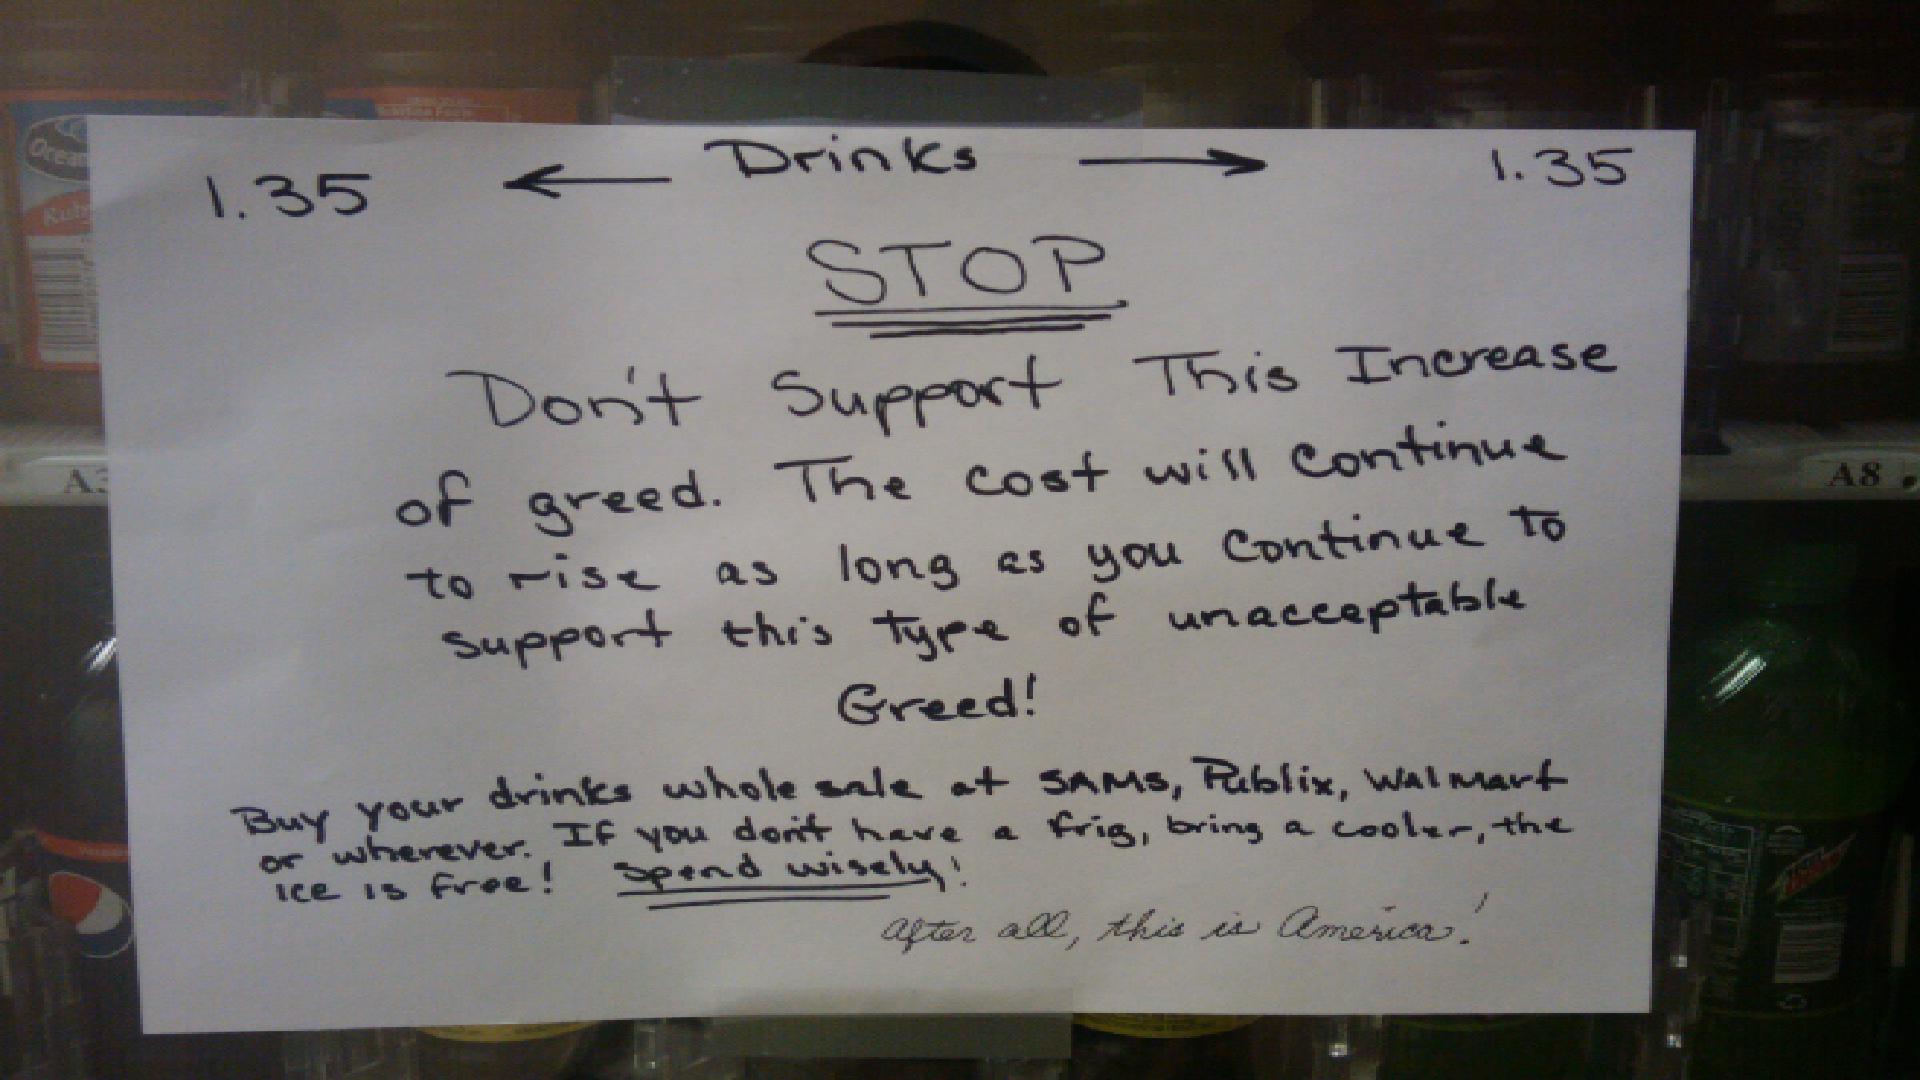 1.35 ← Drinks → 1.35
STOP
Don't Support This Increase
of greed. The cost will continue
to rise as long as you continue to
support this type of unacceptable
Greed!
Buy your drinks whole sale at SAMS, Publix, Walmart
or wherever. If you don't have a frig, bring a cooler, the
ice is free! Spend wisely!
After all, this is America!
Ocean
A8